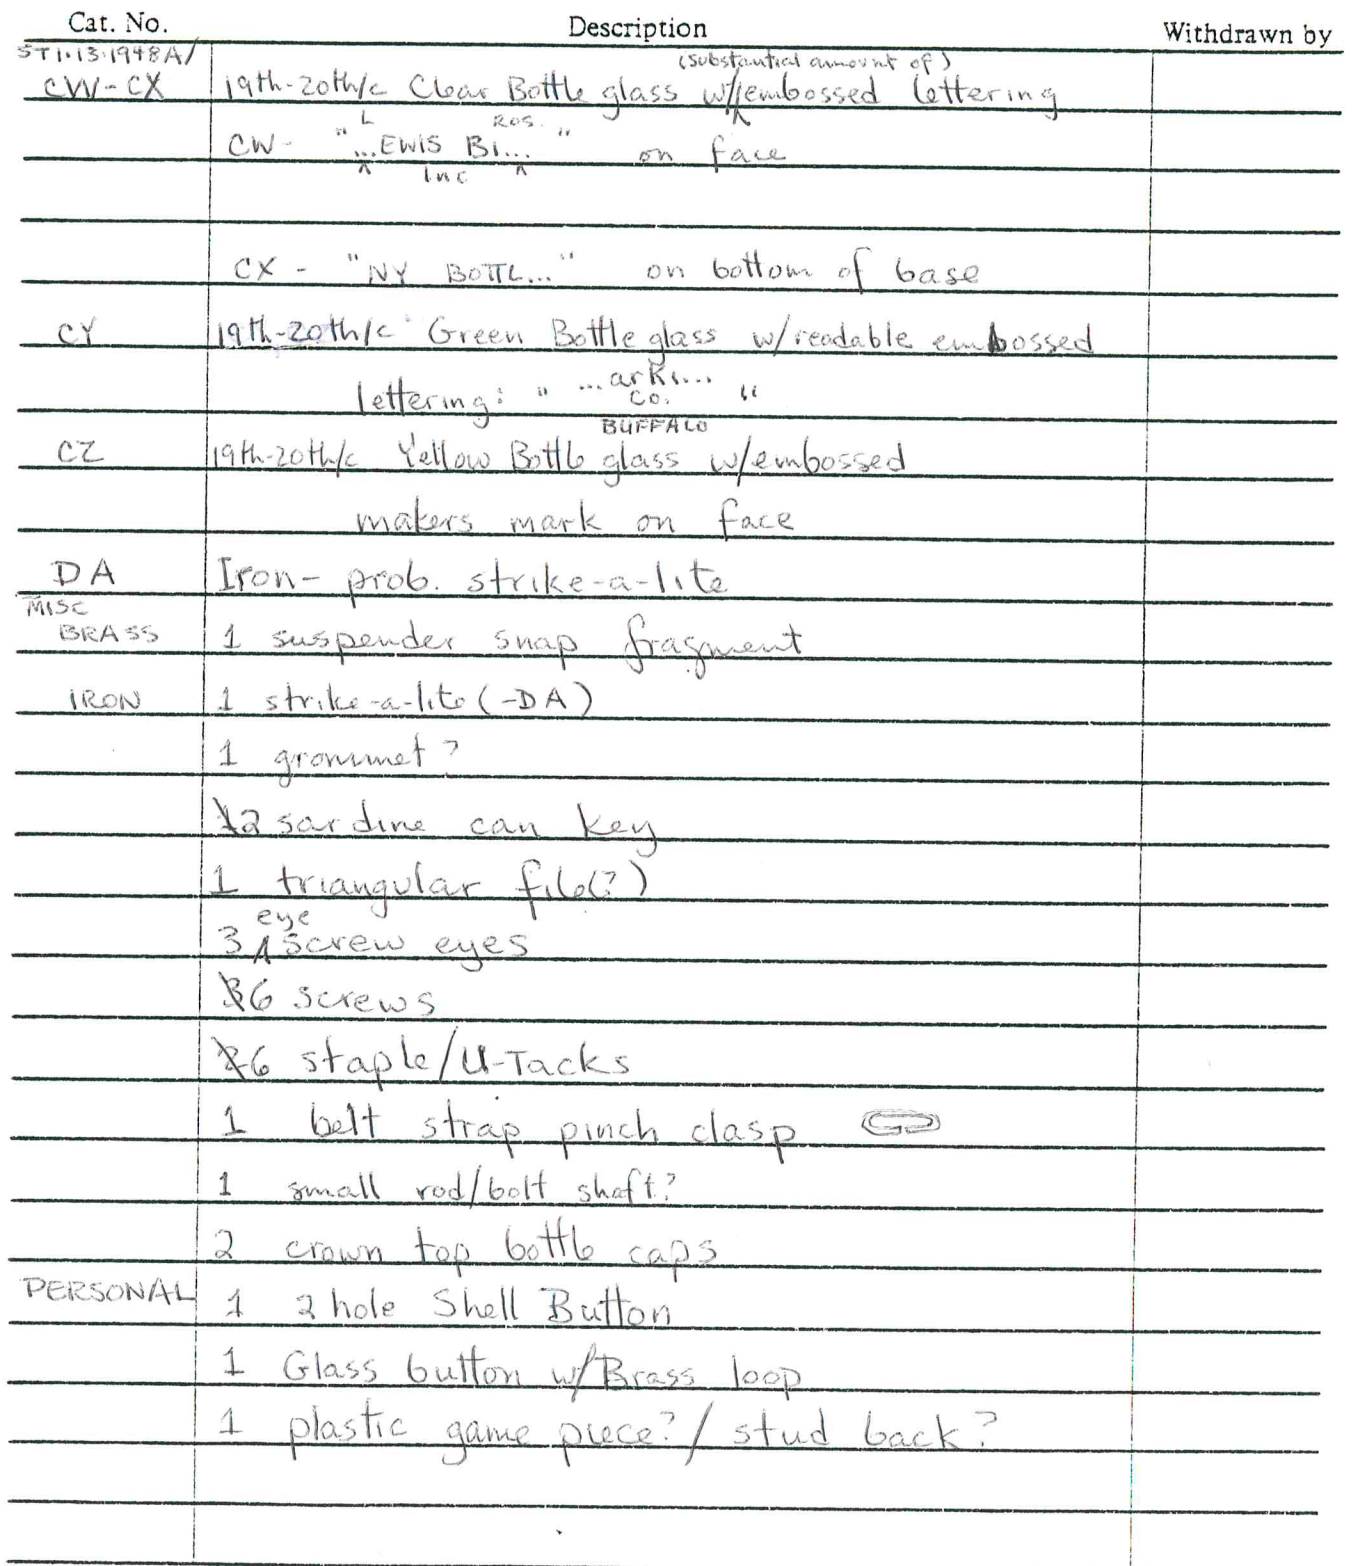 Cat. No. Description Withdrawn by
ST1.13.1948A/
(substantial amount of)
CW-CX 19th-20th/c Clear Bottle glass w/ embossed lettering
L ROS.
CW- "...EWIS B... " on face
Inc
CX - "NY BOTTL..." on bottom of base
CY 19th-20th/c Green Bottle glass w/readable embossed
lettering: " ...ark... "
Co.
BUFFALO
CZ 19th-20th/c Yellow Bottle glass w/embossed
makers mark on face
DA Iron- prob. strike-a-lite
MISC
BRASS 1 suspender snap fragment
IRON 1 strike-a-lite (-DA)
1 grommet?
2 sardine can key
1 triangular file(?)
eye
3 screw eyes
6 screws
6 staple/U-Tacks
1 belt strap pinch clasp
1 small rod/bolt shaft?
2 crown top bottle caps
PERSONAL 1 2 hole Shell Button
1 Glass button w/Brass loop
1 plastic game piece?/ stud back?